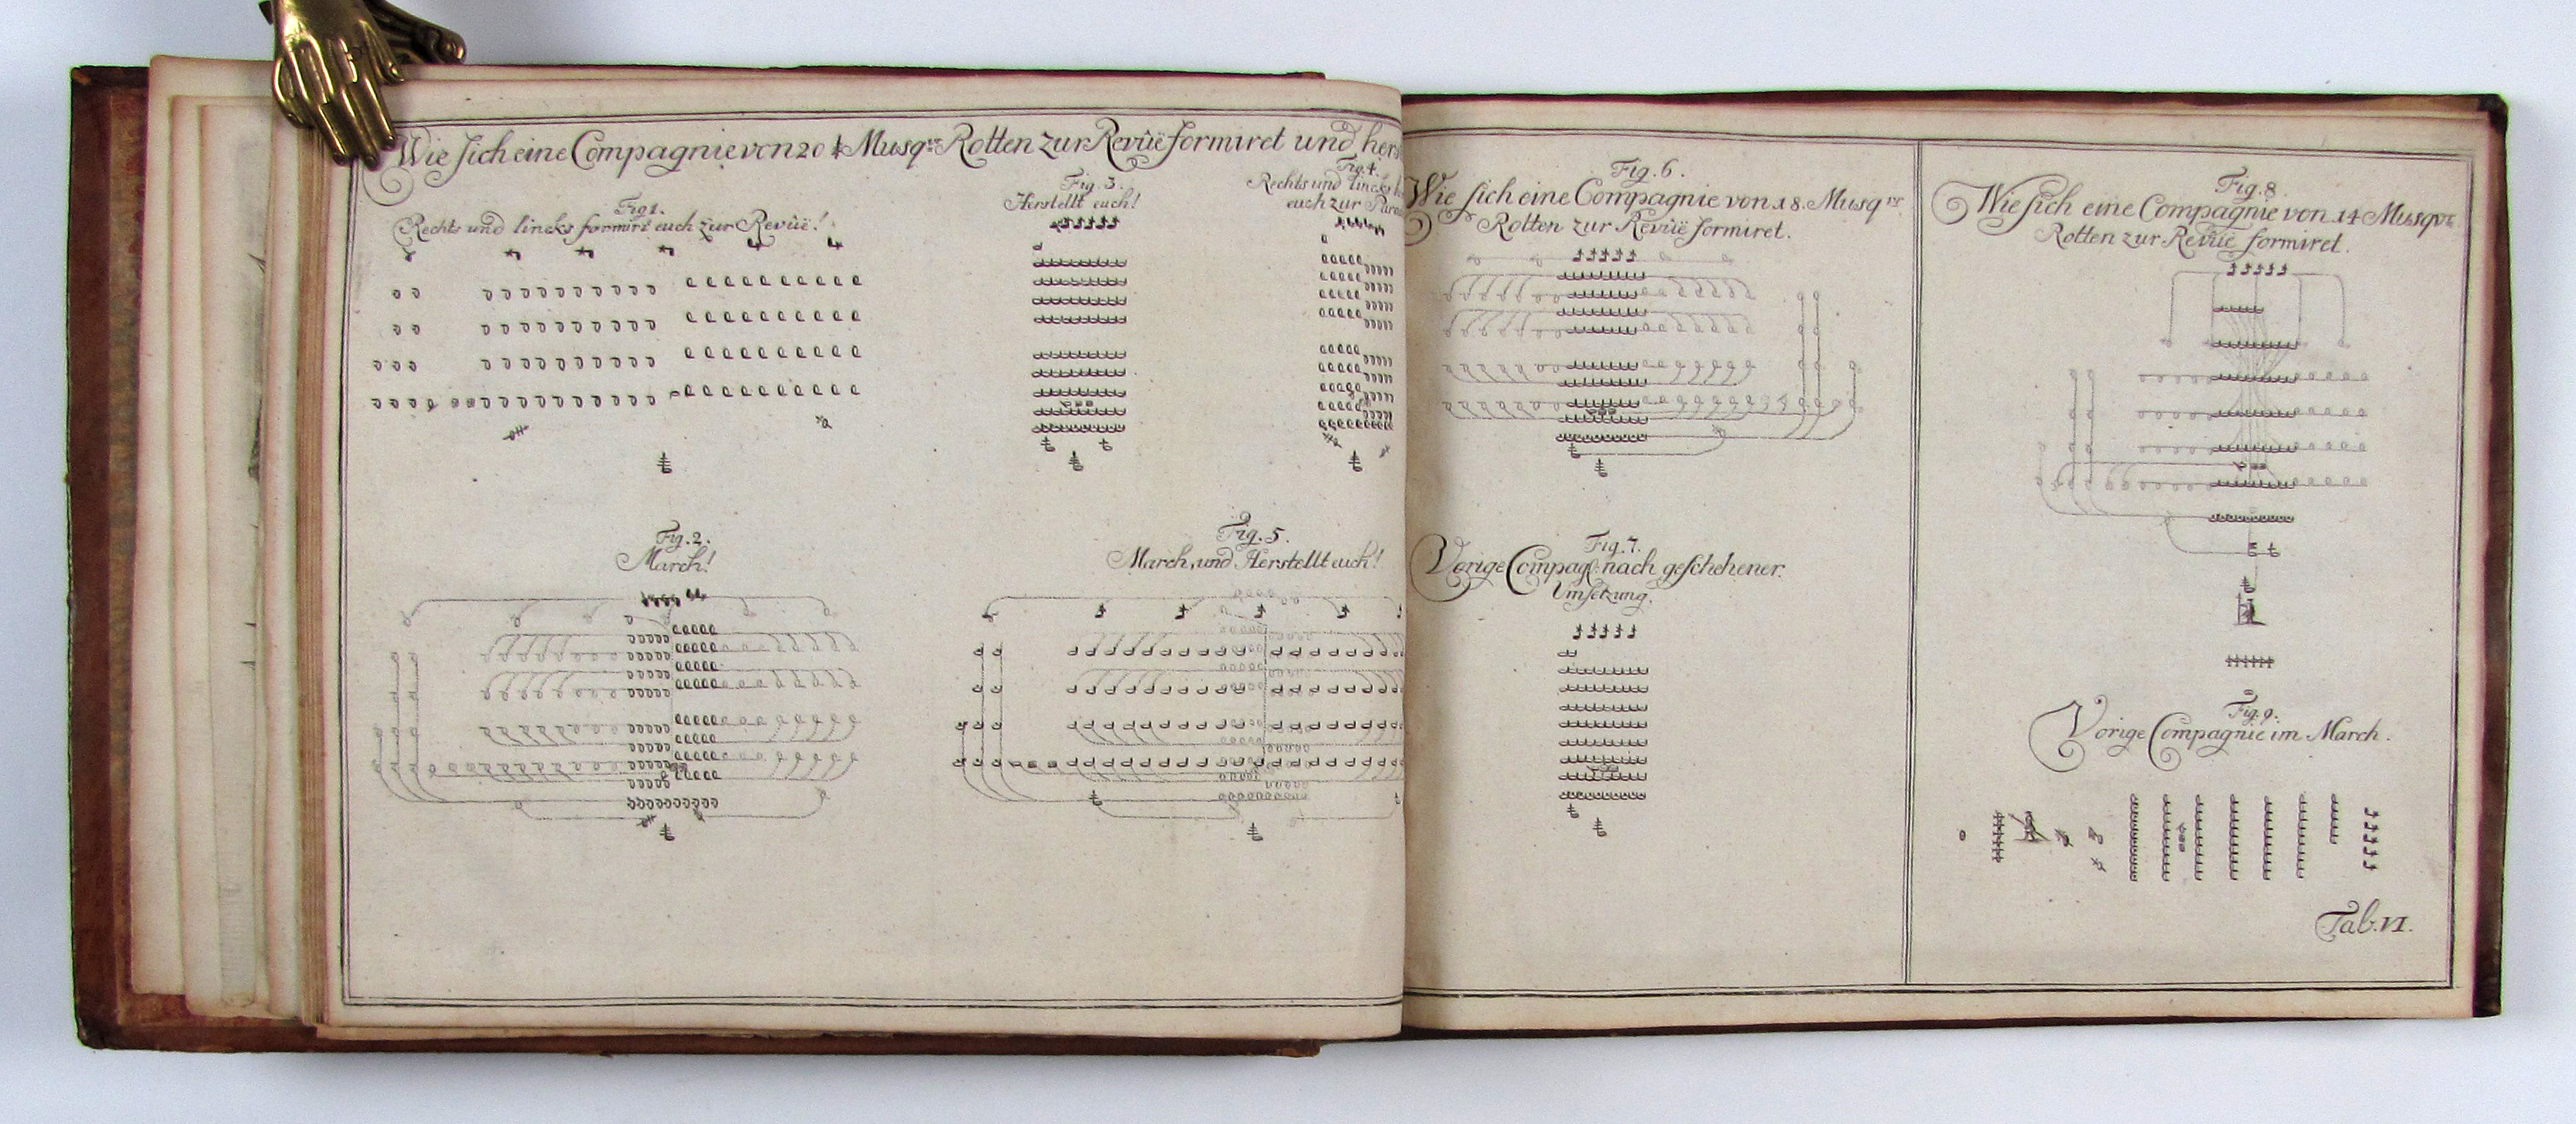 Wie sich eine Compagnie von 20 Musqr. Rotten zur Revüe formiret und hers
Fig. 1.
Rechts und lincks formirt euch zur Revüe!
Fig. 3.
Herstellt euch!
Fig. 4.
Rechts und lincks
euch zur Para
Fig. 2.
March!
Fig. 5.
March, und Herstellt euch!
Fig. 6.
Wie sich eine Compagnie von 18. Musqr.
Rotten zur Revüe formiret.
Fig. 7.
Vorige Compag: nach geschehener.
Umsetzung.
Fig. 8.
Wie sich eine Compagnie von 14 Musqr.
Rotten zur Revüe formiret.
Fig. 9.
Vorige Compagnie im March.
Tab. VI.